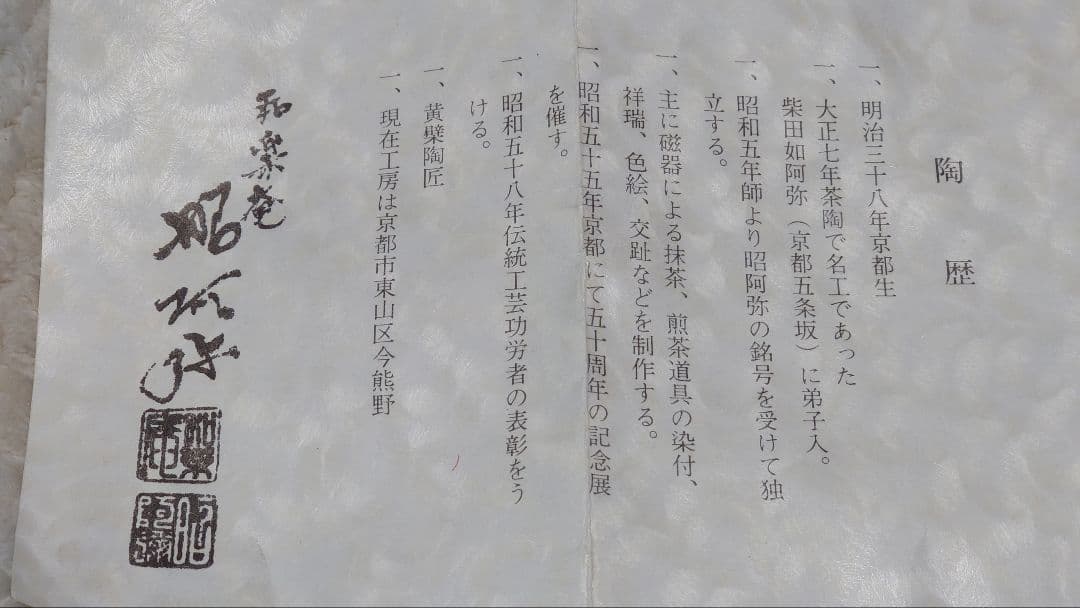 陶歴
一、明治三十八年京都生
一、大正七年茶陶で名工であった
柴田如阿弥（京都五条坂）に弟子入。
一、昭和五年師より昭阿弥の銘号を受けて独
立する。
一、主に磁器による抹茶、煎茶道具の染付、
祥瑞、色絵、交趾などを制作する。
一、昭和五十五年京都にて五十周年の記念展
を催す。
一、昭和五十八年伝統工芸功労者の表彰をう
ける。
一、黄檗陶匠
一、現在工房は京都市東山区今熊野
和楽庵
昭阿弥
和楽庵
昭阿弥